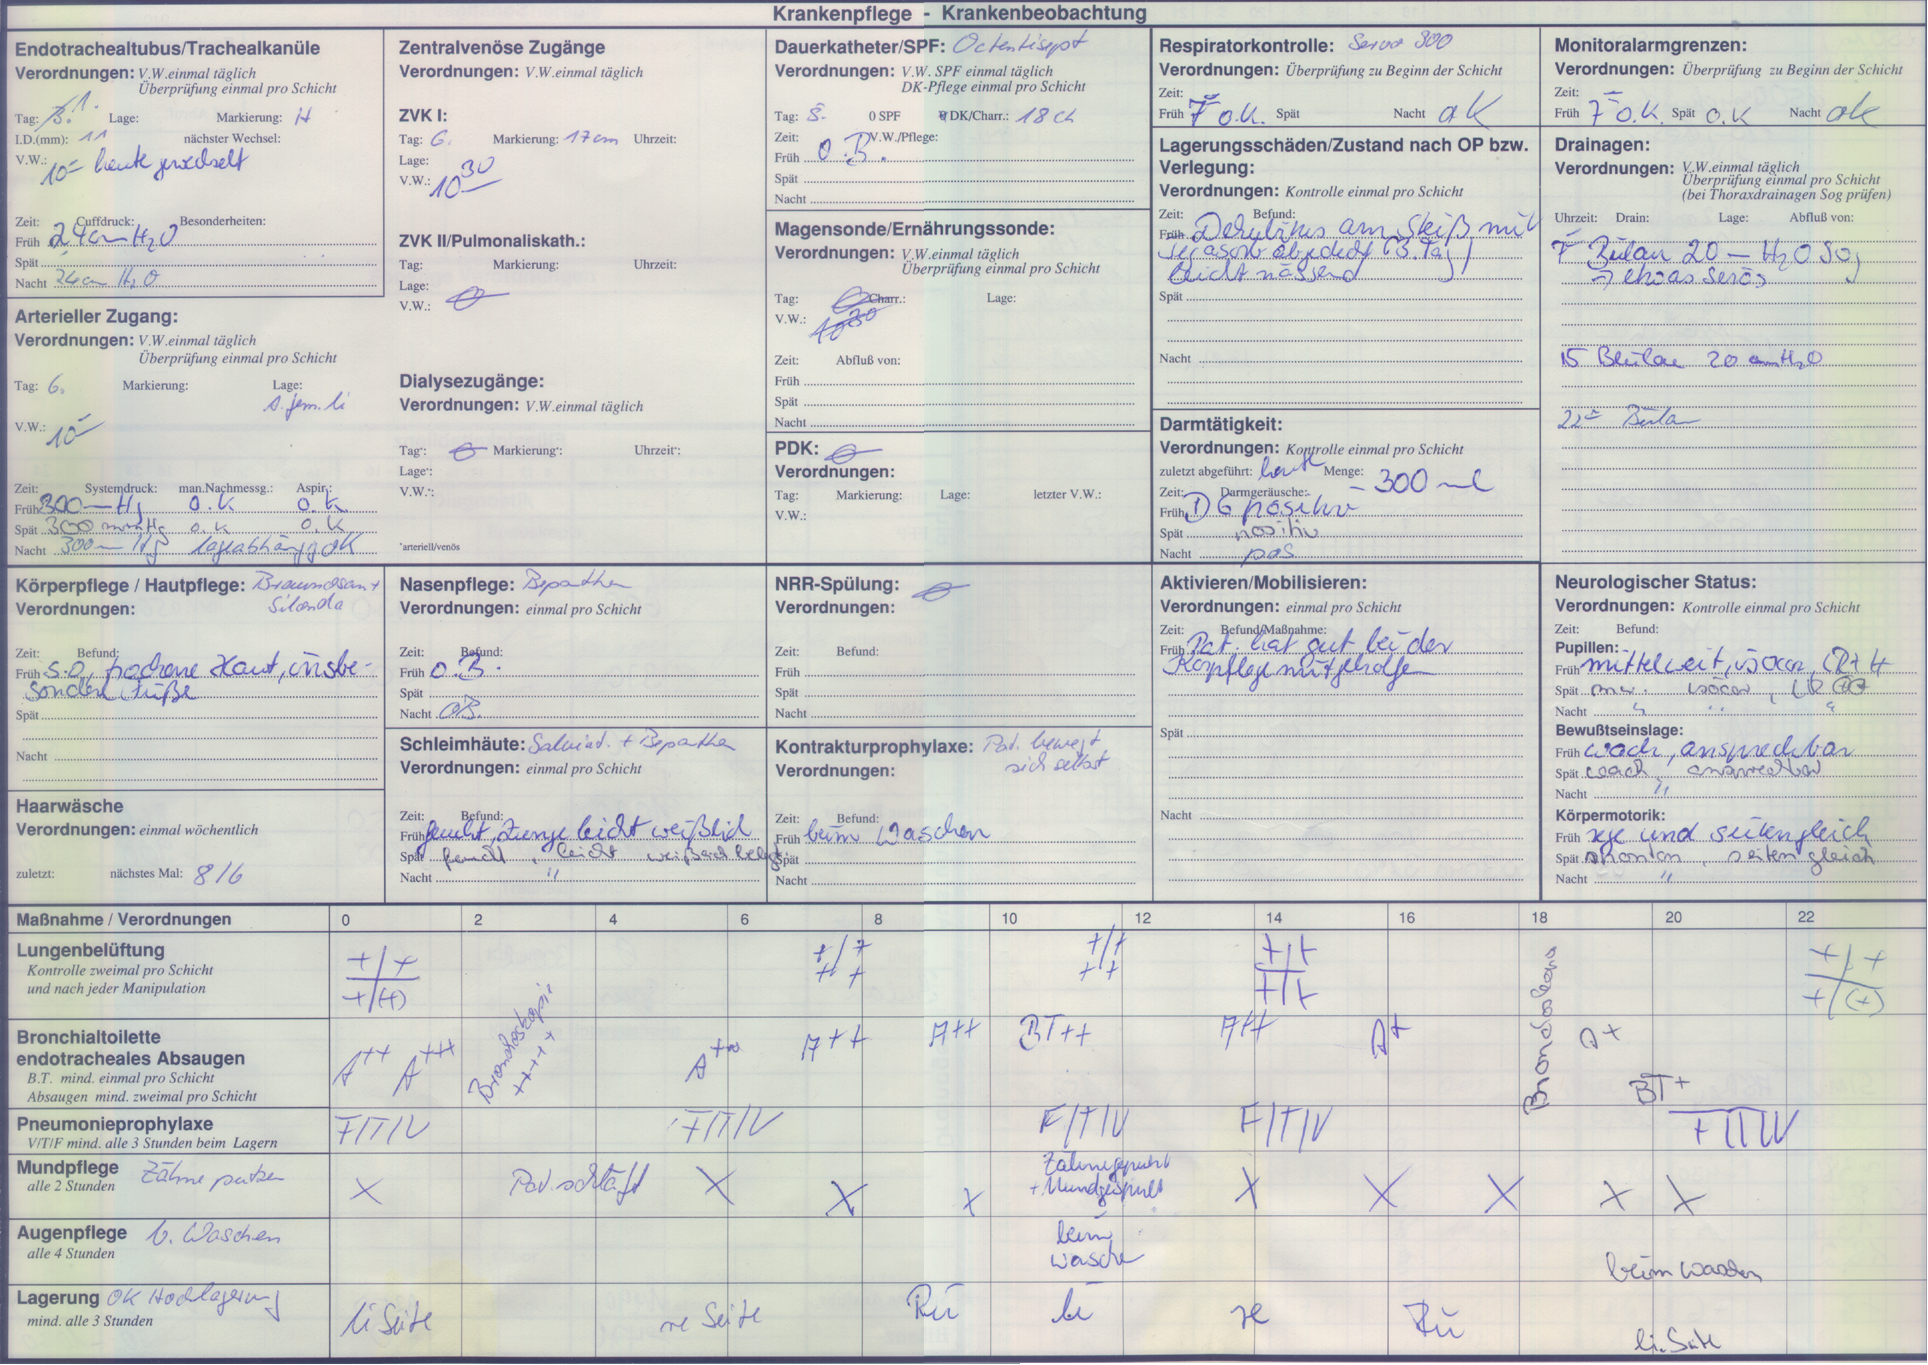 Krankenpflege - Krankenbeobachtung
Endotrachealtubus/Trachealkanüle
Verordnungen: V.W.einmal täglich
Überprüfung einmal pro Schicht
Tag: Lage: Markierung: H
I.D.(mm): 11 nächster Wechsel:
V.W.: 10 heute gewechselt
Zeit: Cuffdruck: Besonderheiten:
Früh 24cm H2O
Spät
Nacht 24cm H2O
Arterieller Zugang:
Verordnungen: V.W.einmal täglich
Überprüfung einmal pro Schicht
Tag: 6. Markierung: Lage:
A. fem. li
V.W.: 10
Zeit: Systemdruck: man.Nachmessg.: Aspir.:
Früh 300 mmHg O.K O.K
Spät 300 mmHg o.k O.K
Nacht 300 mmHg lageabhängig OK
Zentralvenöse Zugänge
Verordnungen: V.W.einmal täglich
ZVK I:
Tag: 6. Markierung: 17cm Uhrzeit:
Lage:
V.W.: 10 30
ZVK II/Pulmonaliskath.:
Tag: Markierung: Uhrzeit:
Lage:
V.W.:
Dialysezugänge:
Verordnungen: V.W.einmal täglich
Tag*: Markierung*: Uhrzeit*:
Lage*:
V.W.*:
*arteriell/venös
Dauerkatheter/SPF: Octenisept
Verordnungen: V.W. SPF einmal täglich
DK-Pflege einmal pro Schicht
Tag: 5. O SPF O DK/Charr.: 18 ch
Zeit: V.W./Pflege:
Früh O.B.
Spät
Nacht
Magensonde/Ernährungssonde:
Verordnungen: V.W.einmal täglich
Überprüfung einmal pro Schicht
Tag: Charr.: Lage:
V.W.: 10 30
Zeit: Abfluß von:
Früh
Spät
Nacht
PDK:
Verordnungen:
Tag: Markierung: Lage: letzter V.W.:
V.W.:
Respiratorkontrolle: Servo 300
Verordnungen: Überprüfung zu Beginn der Schicht
Zeit:
Früh 7 O.K. Spät Nacht OK
Lagerungsschäden/Zustand nach OP bzw.
Verlegung:
Verordnungen: Kontrolle einmal pro Schicht
Zeit: Befund:
Früh Dekubitus am Steiß mit
abgedeckt (3. Tag)
leicht nässend
Spät
Nacht
Darmtätigkeit:
Verordnungen: Kontrolle einmal pro Schicht
zuletzt abgeführt: heute Menge: 300 ml
Zeit: Darmgeräusche:
Früh DG positiv
Spät positiv
Nacht pos
Monitoralarmgrenzen:
Verordnungen: Überprüfung zu Beginn der Schicht
Zeit:
Früh 7 O.K. Spät O.K Nacht ok
Drainagen:
Verordnungen: V.W.einmal täglich
Überprüfung einmal pro Schicht
(bei Thoraxdrainagen Sog prüfen)
Uhrzeit: Drain: Lage: Abfluß von:
7 Bülau 20 cm H2O Sog
→ etwas serös
15 Bülau 20 cmH2O
22 Bülau
Körperpflege / Hautpflege: Braunosan +
Silonda
Verordnungen:
Zeit: Befund:
Früh s.o., trockene Haut, insbe-
sondere Füße
Spät
Nacht
Haarwäsche
Verordnungen: einmal wöchentlich
zuletzt: nächstes Mal: 8/6
Nasenpflege: Bepanthen
Verordnungen: einmal pro Schicht
Zeit: Befund:
Früh O.B.
Spät
Nacht OB.
Schleimhäute: Salviat. + Bepanthen
Verordnungen: einmal pro Schicht
Zeit: Befund:
Früh feucht, Zunge leicht weißlich
Spät feucht, leicht weißlich belegt
Nacht "
NRR-Spülung:
Verordnungen:
Zeit: Befund:
Früh
Spät
Nacht
Kontrakturprophylaxe: Pat. bewegt
sich selbst
Verordnungen:
Zeit: Befund:
Früh beim Waschen
Spät
Nacht
Aktivieren/Mobilisieren:
Verordnungen: einmal pro Schicht
Zeit: Befund/Maßnahme:
Früh Pat. hat gut bei der
Körpflege mitgeholfen
Spät
Nacht
Neurologischer Status:
Verordnungen: Kontrolle einmal pro Schicht
Zeit: Befund:
Pupillen:
Früh mittelweit, isocor, LR ++
Spät mw. isocor, LR
Nacht " " "
Bewußtseinslage:
Früh wach, ansprechbar
Spät wach, ansprechbar
Nacht "
Körpermotorik:
Früh rege und seitengleich
Spät spontan, seitengleich
Nacht "
Maßnahme / Verordnungen 0 2 4 6 8 10 12 14 16 18 20 22
Lungenbelüftung
Kontrolle zweimal pro Schicht
und nach jeder Manipulation
+/+ +/+ +/+ +/+ +/+
+/(+) +/+ +/+ +/+ +/(+)
Bronchialtoilette
endotracheales Absaugen
B.T. mind. einmal pro Schicht
Absaugen mind. zweimal pro Schicht
A++ A+++ Bronchoskopie ++++ A++ A++ A++ BT++ A++ A+ Bronchoskopie A+ BT+
Pneumonieprophylaxe
V/T/F mind. alle 3 Stunden beim Lagern
F/T/V F/T/V F/T/V F/T/V F/T/V
Mundpflege Zähne putzen
alle 2 Stunden
X Pat. schläft X X X Zähne geputzt + Mund gespült X X X X X
Augenpflege b. Waschen
alle 4 Stunden
beim wasche beim waschen
Lagerung OK Hochlagerung
mind. alle 3 Stunden
li Seite re Seite Rü li re Rü li. Seite